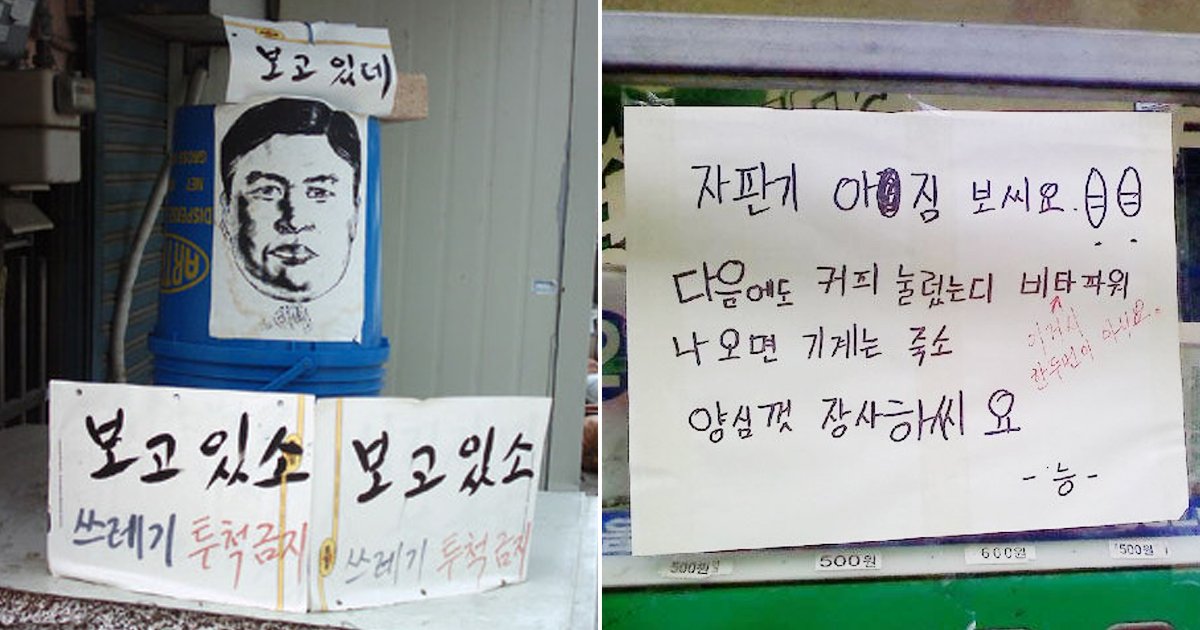 보고 있네
보고 있소
쓰레기 투척금지
보고 있소
쓰레기 투척금지
자판기 아 짐 보씨요.
다음에도 커피 눌렀는디 비타파워
이거시
한두번이 아닉요.
나오면 기계는 죽소
양심껏 장사하씨요
- 능 -
500원
500원
600원
500원